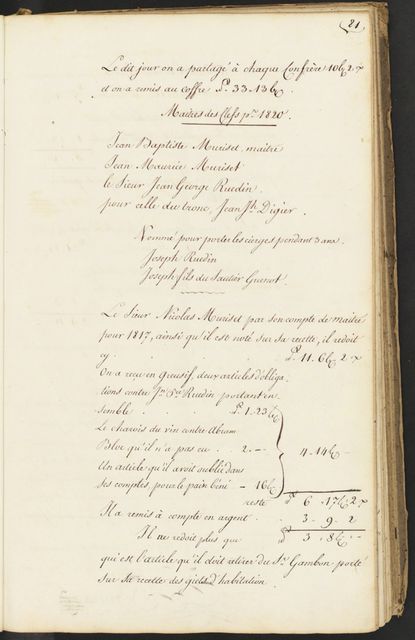 21
Le dit jour on a partagé à chaque Confrère 10 ß 2 x
et on a remis au coffre £ 33.13 ß
Maitres des Clefs pr. 1820.
Jean Baptiste Muriset, maitre
Jean Maurice Muriset
le Sieur Jean George Ruedin.
pour celle du tronc, Jean Js. Digier.
Nommé pour porter les cierges pendant 3 ans.
Joseph Ruedin
Joseph fils du Sautier Guenot.
Le Sieur Nicolas Muriset par son compte de maitre
pour 1817, ainsi qu'il est noté sur sa recette, il redoit
cy . . . £ 11. 6 ß 2 x
On a reçu en deux articles d'obliga
tions contre Jn. Ruedin portant en
semble . . £ 1. 23 ß
Le charois du vin contre Abram
qu'il n'a pas eu . 2. — 4 - 14 ß -
Un article qu'il avoit oublié dans
ses comptes, pour le pain béni — 16 ß
reste £ 6 . 17 ß 2 x
Il a remis à compte en argent . 3 - 9 . 2
Il ne redoit plus que £ 3 . 8 ß -
qui est l'article qu'il doit retirer du Sr. Gambon porté
sur sa recette des d'habitation.